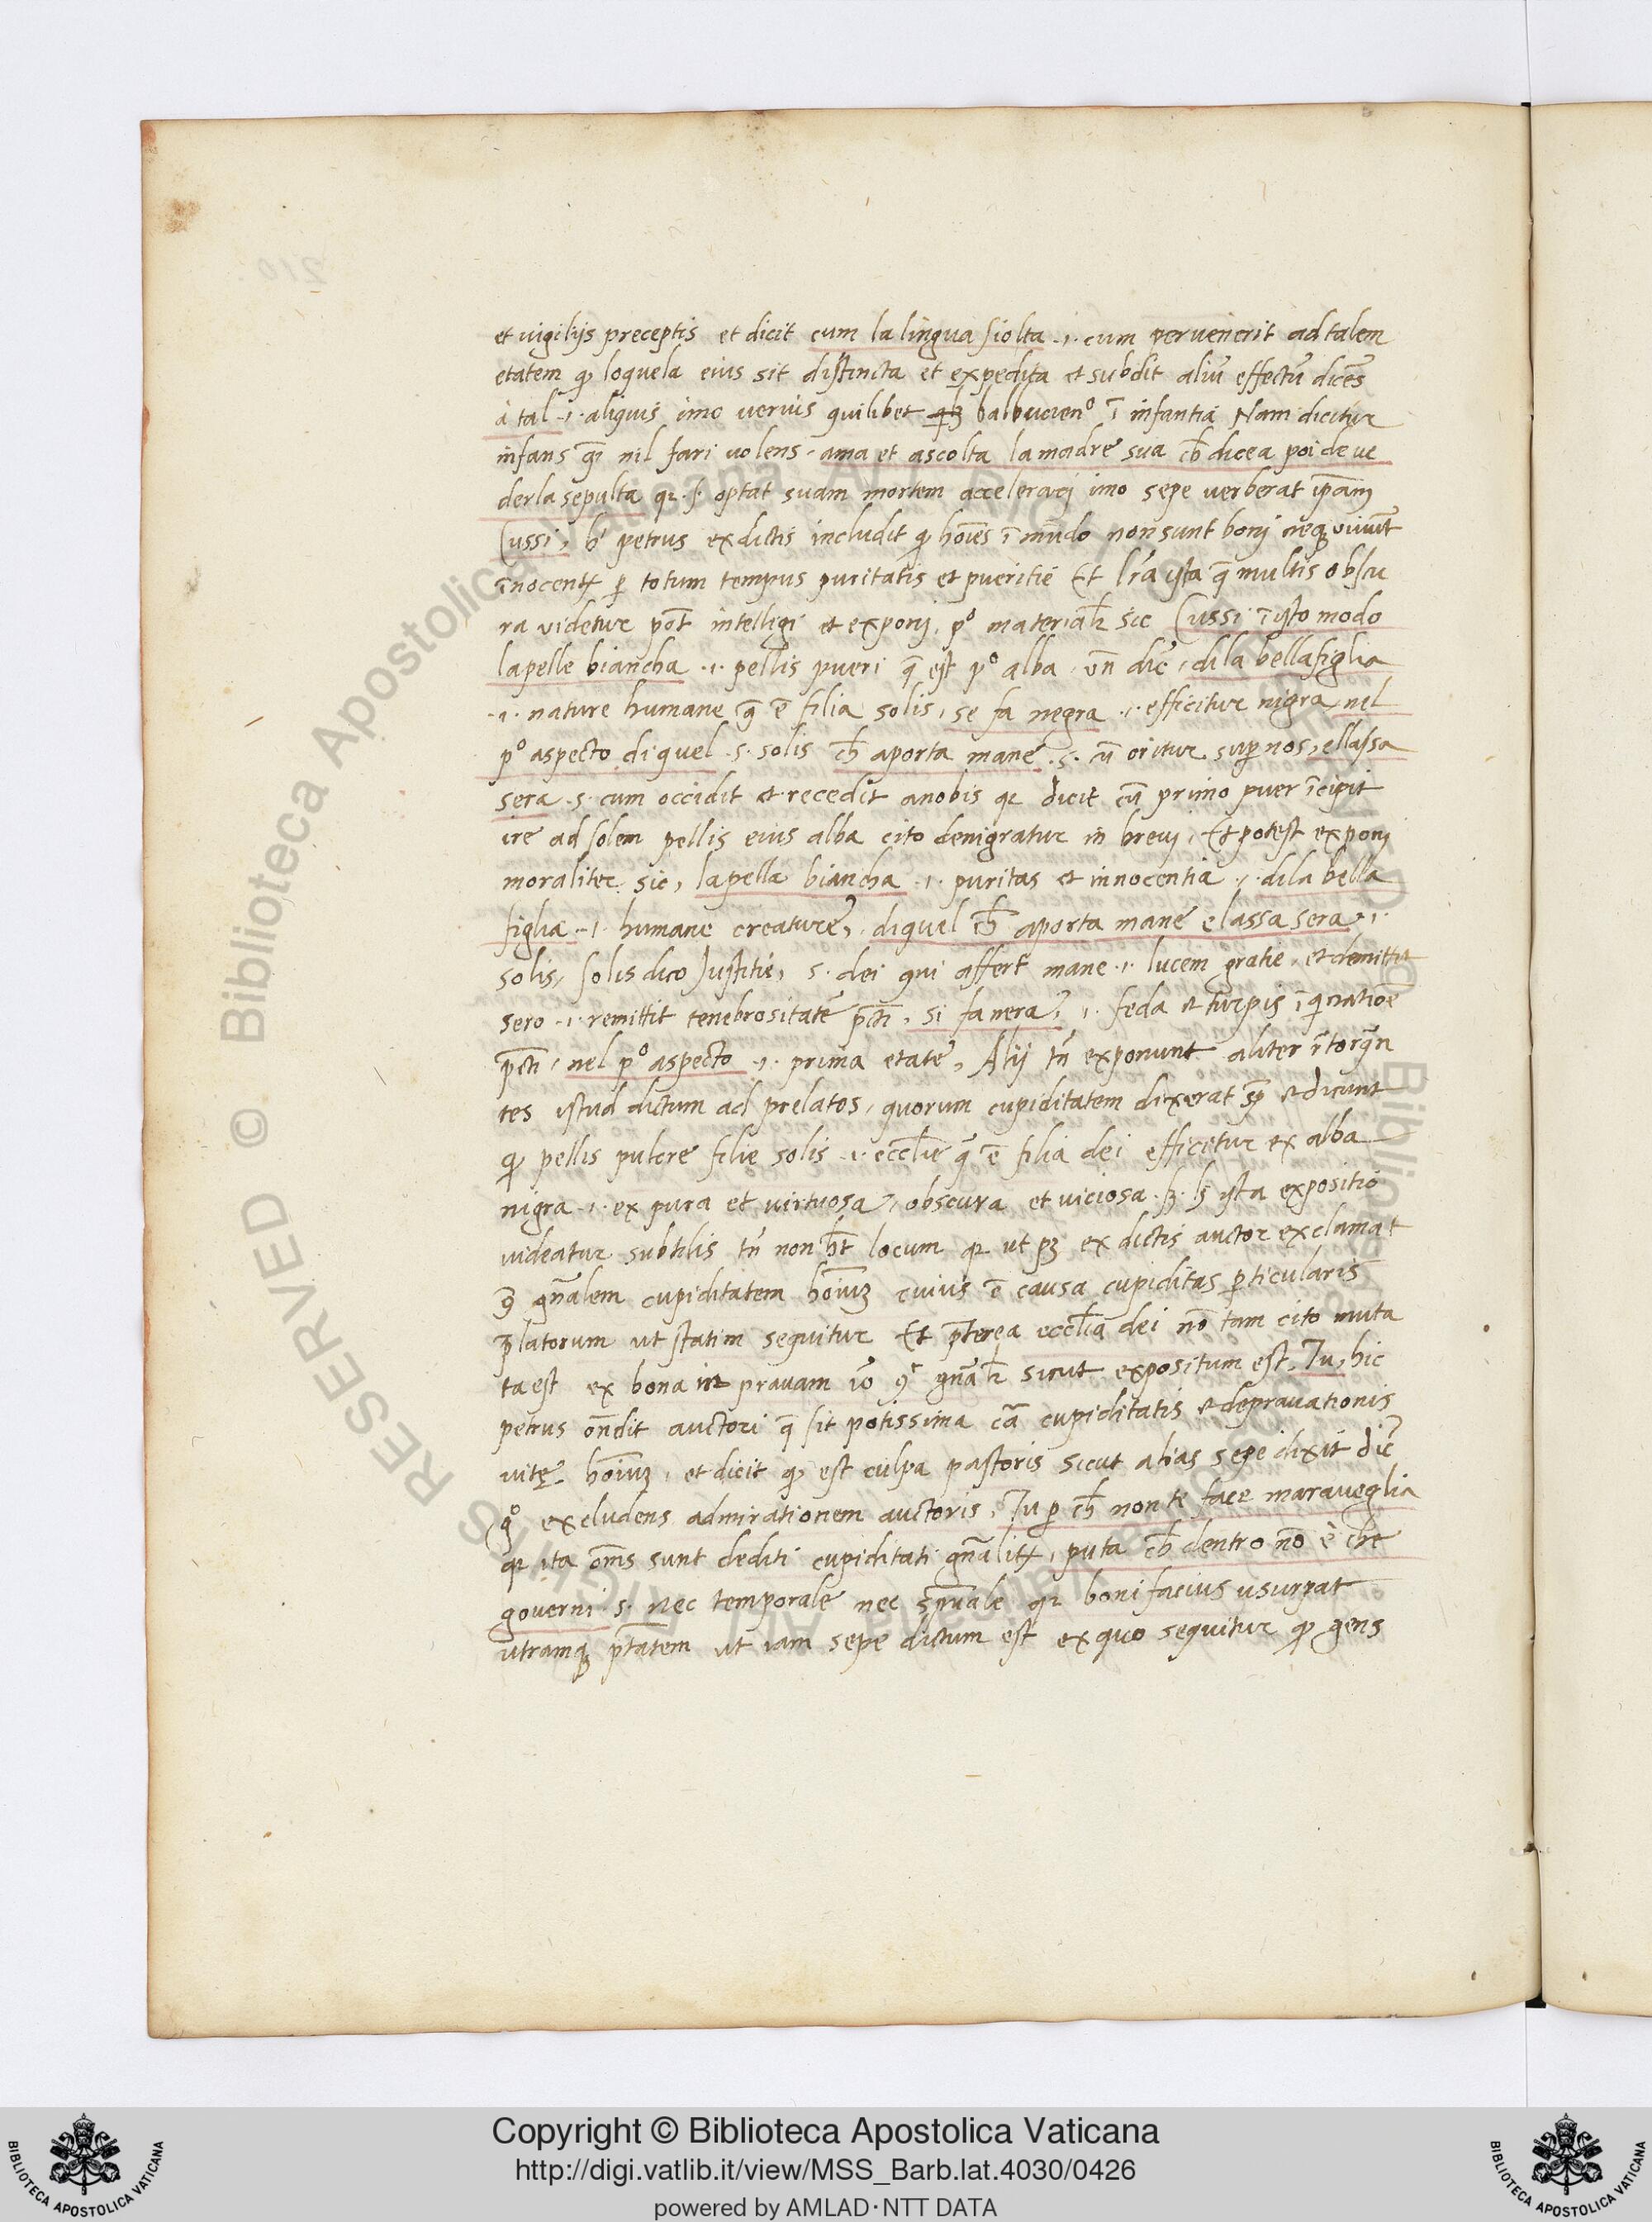 et vigilijs preceptis et dicit cum la lingua siolta .i. cum pervenerit ad talem
etatem qꝫ loquela eius sit distincta et expedita et subdit aliū effectū dicēs
à tal .i. aliquis imo verius quilibet balbucienº ī infantia Nam dicitur
infans qī nil fari volens. ama et ascolta la madre sua ch̄ dicea poi de ve
derla sepulta qꝛ .s. optat suam mortem accelerarj imo sepe verberat ip̄am
Cussi, b' petrus ex dictis includit qꝫ hōies ī mūdo non sunt bonj neqꝫ vivūt
īnocentꝝ ꝑ totum tempus puritatis et pueritie Et lr̄a ysta q̄ multis obscu
ra videtur pōt intelligi et exponj. pº material̄r sic Cussi ī ysto modo
la pelle biancha .i. pellis pueri q̄ est pº alba. vn̄ dic̄, dila bella figlia
.i. nature humane q̄ ē filia solis, se fa negra .i. efficitur nigra, nel
pº aspecto di quel .s. solis ch̄ aporta mane .s. cū oritur supꝫ nos, ellassa
sera .s. cum occidit et recedit a nobis qꝛ dicit cū primo puer īcipit
ire ad solem pellis eius alba cito denigratur in brevj. Et potest exponj
moraliter sic, la pella biancha .i. puritas et innocentia, dila bella
figlia .i. humane creature, di quel ch̄ aporta mane e lassa sera .i.
solis, solis dico Justitie, s. dei qui affert mane .i. lucem gratie, et demittit
sero .i. remittit tenebrositatē pc̄ti, si fa nera, .i. feda et turpis īqinatiōe
pc̄ti, nel pº aspecto .i. prima etate, Alij tn̄ exponunt aliter r̄torqn̄
tes istud dictum ad prelatos, quorum cupiditatem dixerat sp̄ et dicunt
qꝫ pellis pulcre filie solis .i. eccl̄ie q̄ ē filia dei efficitur ex alba
nigra .i. ex pura et virtuosa, obscura et viciosa. sꝫ lꝫ ysta expositio
videatur subtilis tn̄ non h̄t locum qꝛ ut pꝫ ex dictis auctor exclamat
ꝯ gn̄alem cupiditatem hōiuꝫ cuius ē causa cupiditas ꝑticularis
p̄latorum ut statim sequitur Et p̄terea eccl̄ia dei nō tam cito muta
ta est ex bona in pravam iō gn̄al̄r sicut expositum est. Tu, hic
petrus on̄dit auctori q̄ sit potissima cā cupiditatis et depravationis
vitę hōiuꝫ, et dicit qꝫ est culpa pastoris sicut alias sepe dixit dic̄
gº excludens admirationem auctoris, Tu ꝑ ch̄ non te face maraveglia
qꝛ ita om̄s sunt dediti cupiditati gn̄alitꝝ, puta ch̄ dentro nō è che
governi .s. nec temporale nec spūale qꝛ bonifacius usurpat
utramqꝫ pt̄atem ut iam sepe dictum est ex quo sequitur qꝫ gens
Copyright © Biblioteca Apostolica Vaticana
http://digi.vatlib.it/view/MSS_Barb.lat.4030/0426
powered by AMLAD·NTT DATA